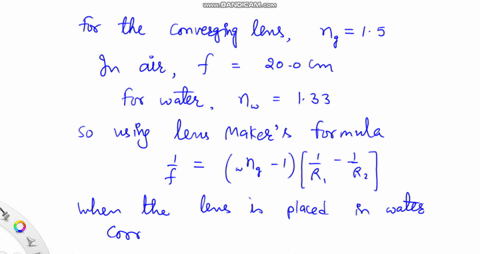 WWW.BANDICAM.COM
for the converging lens, n_g = 1.5
In air, f = 20.0 cm
for water, n_w = 1.33
So using lens Maker's formula
1/f = (_wn_g - 1) [1/R_1 - 1/R_2]
when the lens is placed in water
corr